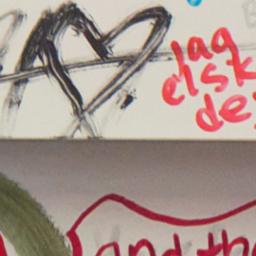 Jag
elsk
de
and the